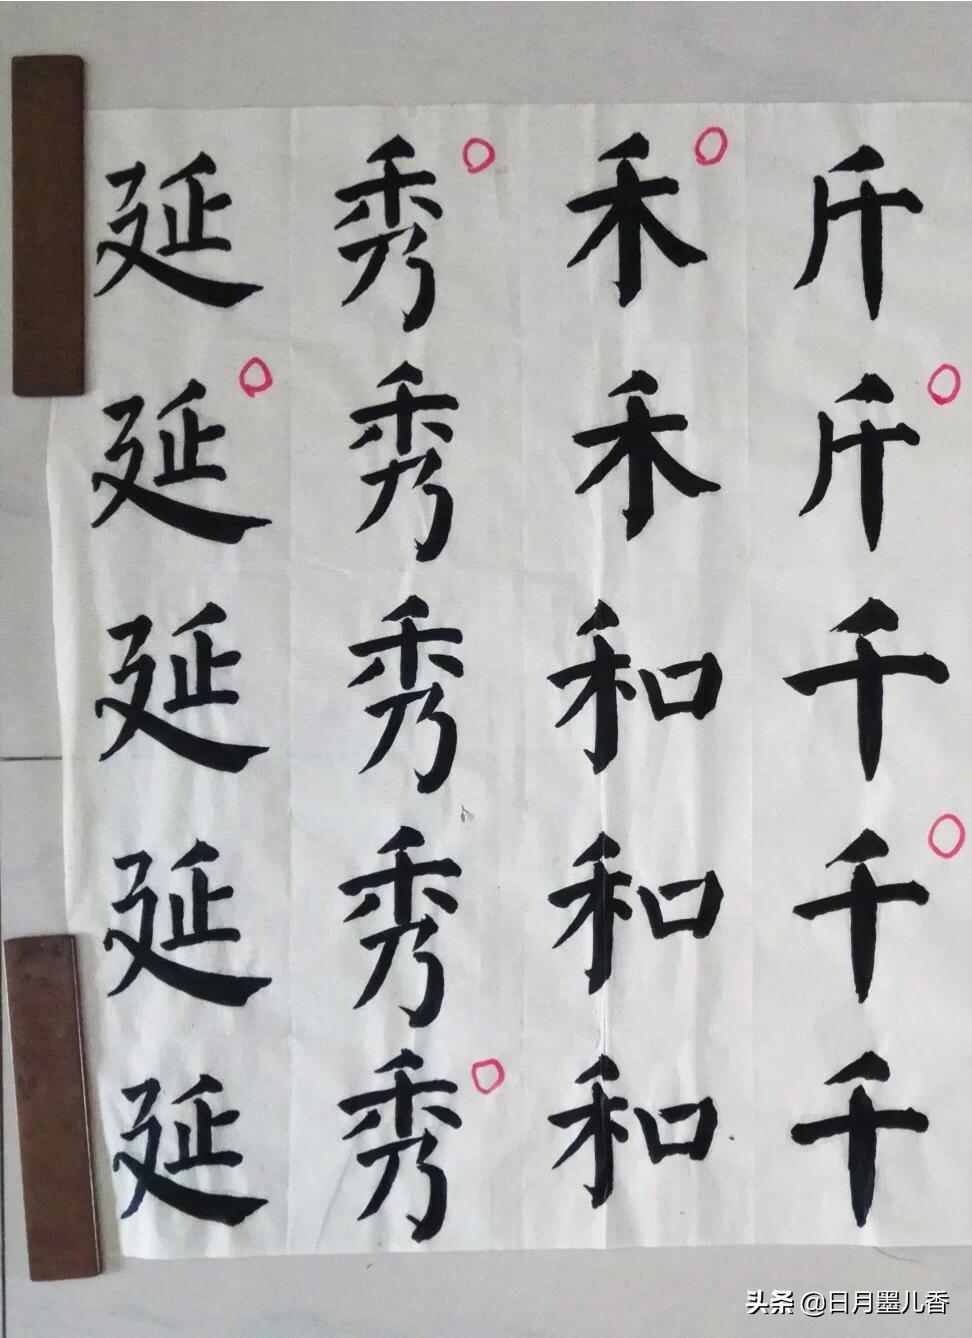 斤斤千千千
禾禾和和和
秀秀秀秀秀
延延延延延
头条 @日月墨儿香